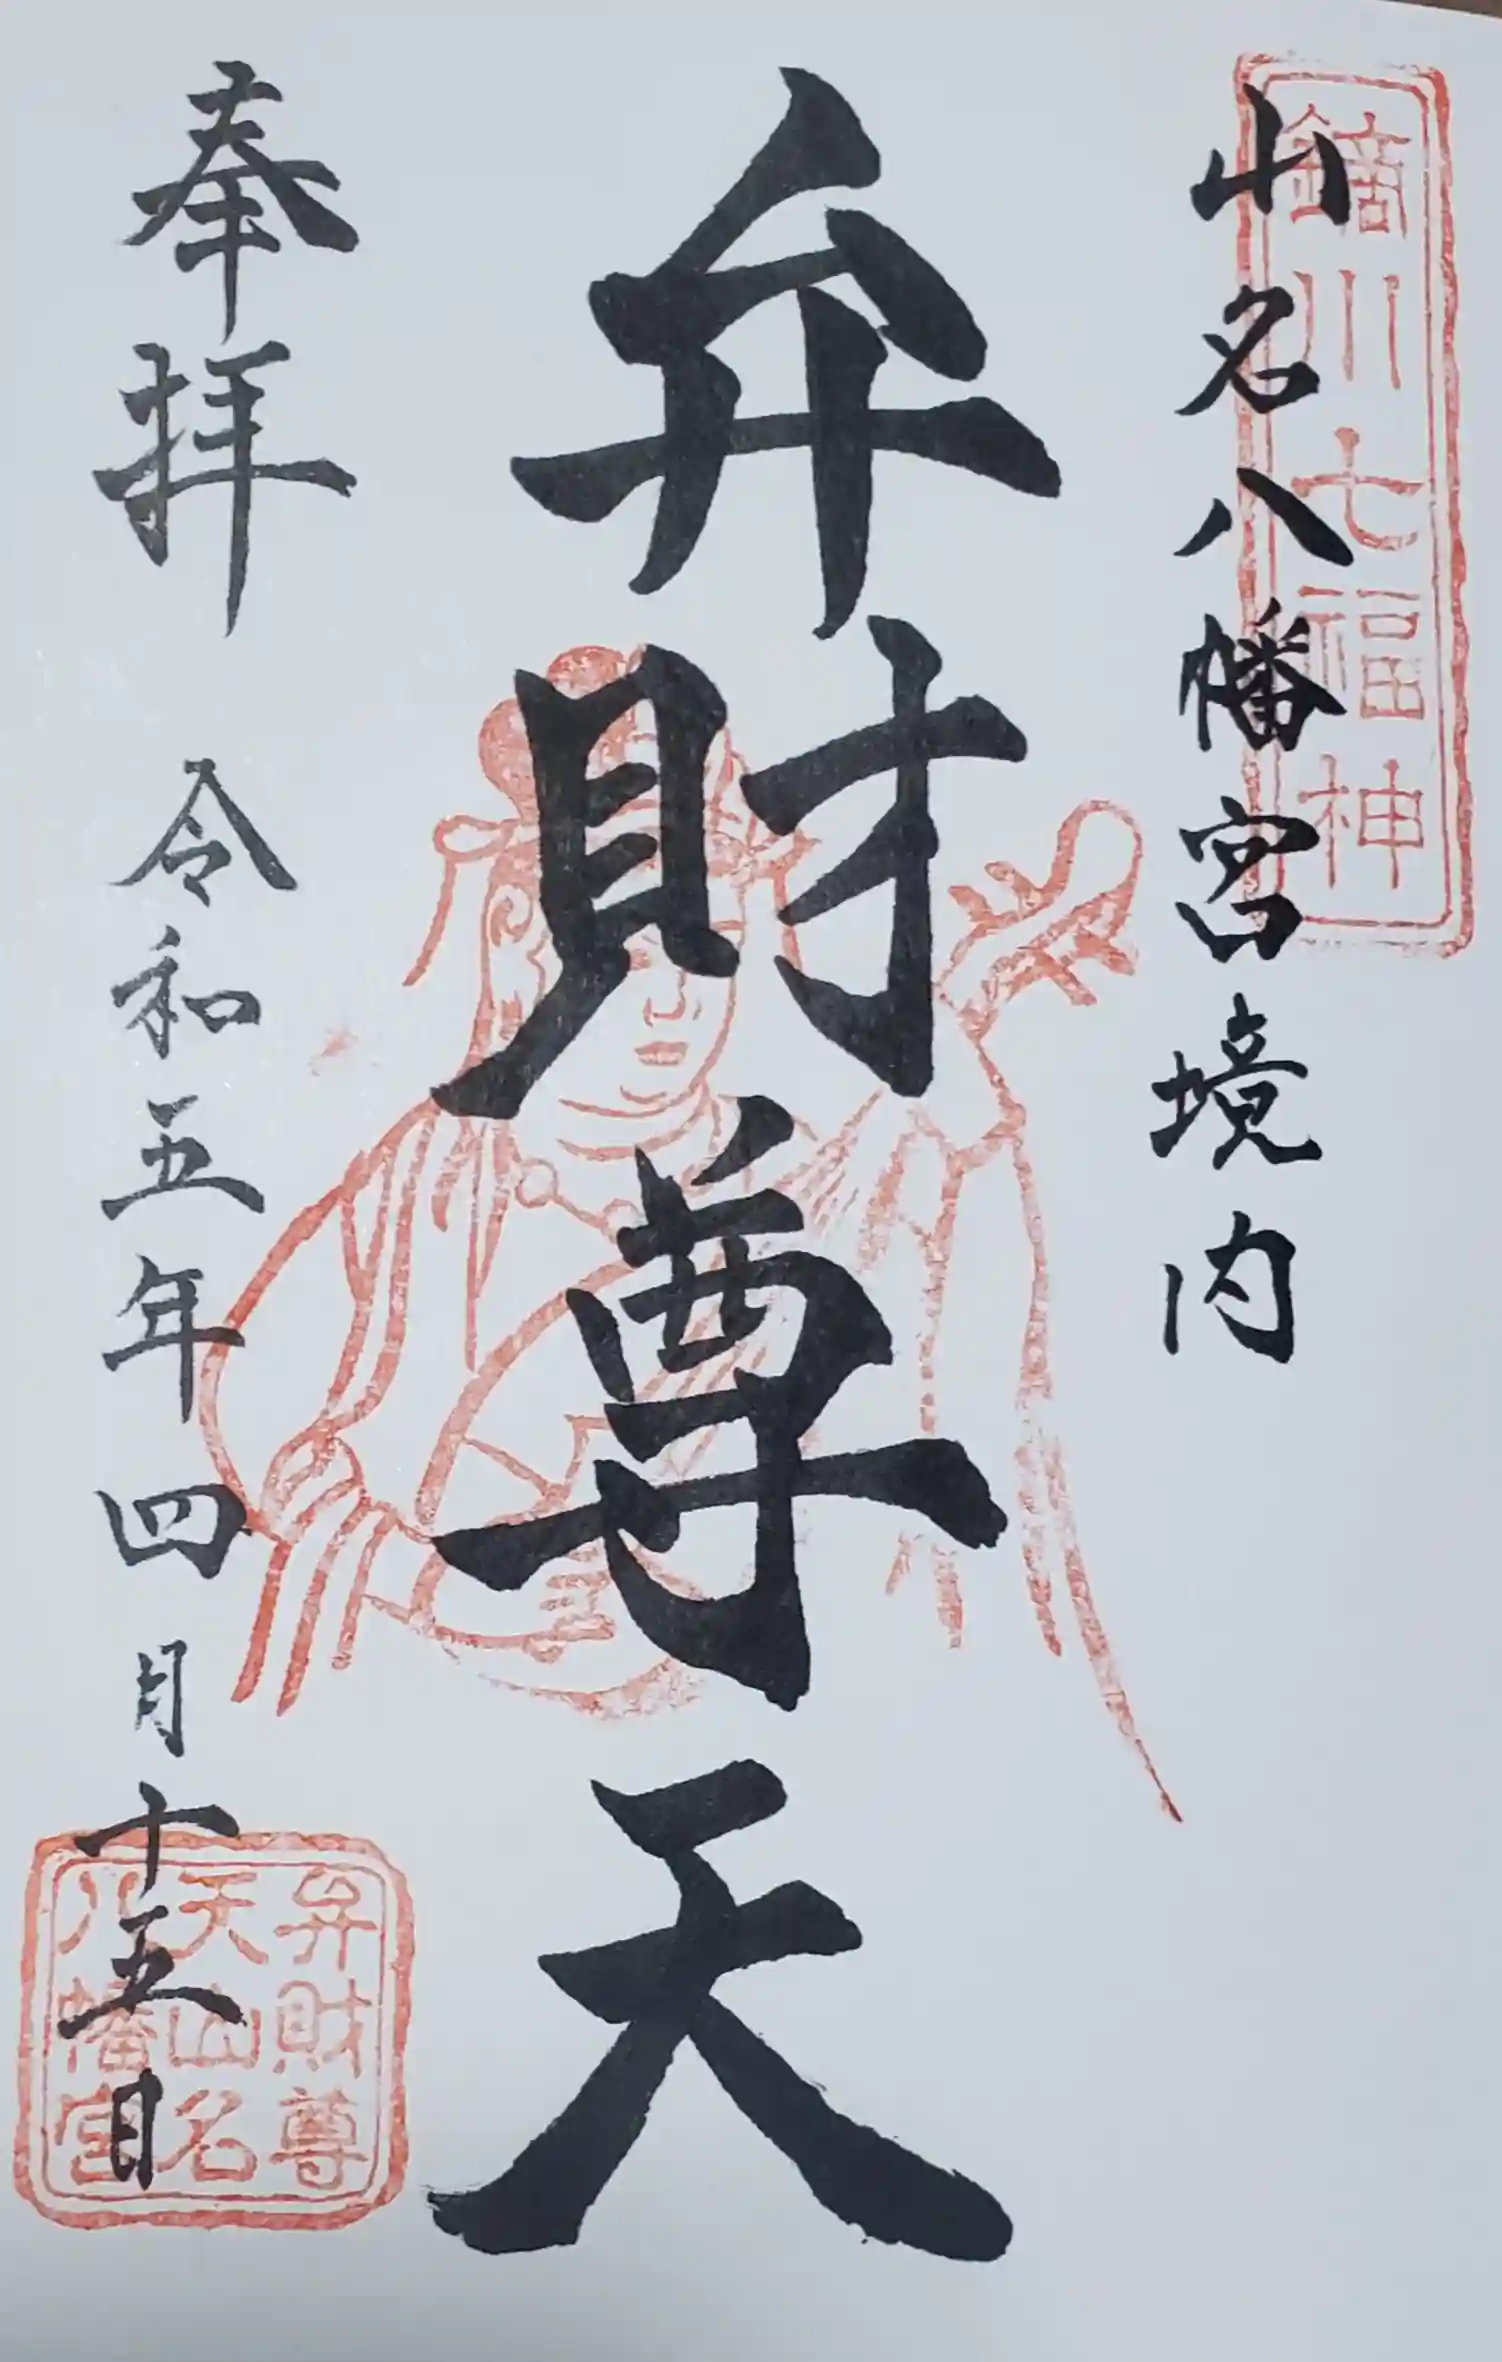 鏑川七福神
山名八幡宮境内
弁財尊天
奉拝
令和五年四月十五日
弁財尊
天山名
八幡宮